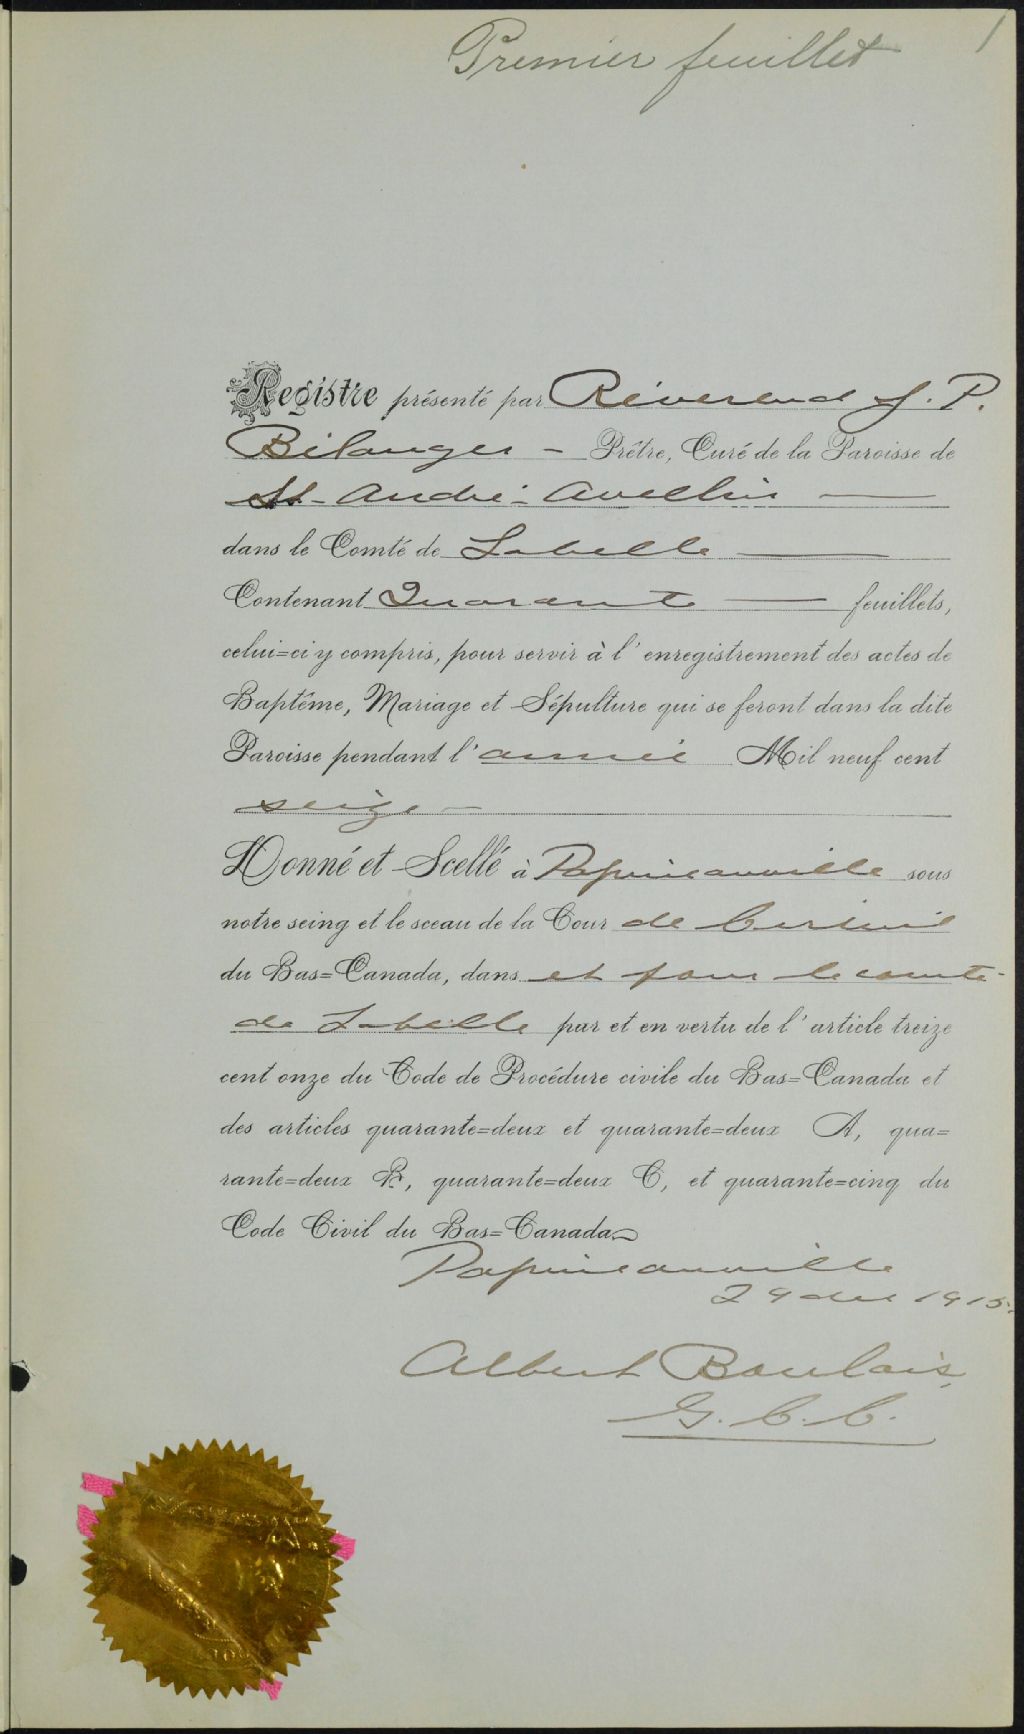 1
Premier feuillet
Registre présenté par Révérend J. P.
Bélanger - Prêtre, Curé de la Paroisse de
St-André-Avellin
dans le Comté de Labelle
Contenant Quarante feuillets,
celui=ci y compris, pour servir à l'enregistrement des actes de
Baptême, Mariage et Sépulture qui se feront dans la dite
Paroisse pendant l'année Mil neuf cent
seize -
Donné et Scellé à Papineauville sous
notre seing et le sceau de la Cour de Circuit
du Bas=Canada, dans et pour le comté
de Labelle par et en vertu de l'article treize
cent onze du Code de Procédure civile du Bas=Canada et
des articles quarante=deux et quarante=deux A, qua=
rante=deux B, quarante=deux C, et quarante=cinq du
Code Civil du Bas=Canada.
Papineauville
29 dec 1915.
Albert Boulais,
G. C. C.